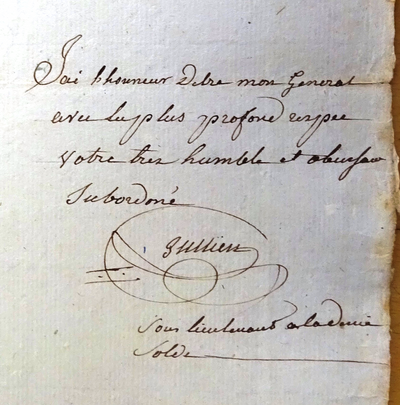 J'ai l'honneur d'etre mon General
avec le plus profond respec
votre trez humble et obeissan
Subordoné
Jullien
Sous lieutenant a la demie
Solde